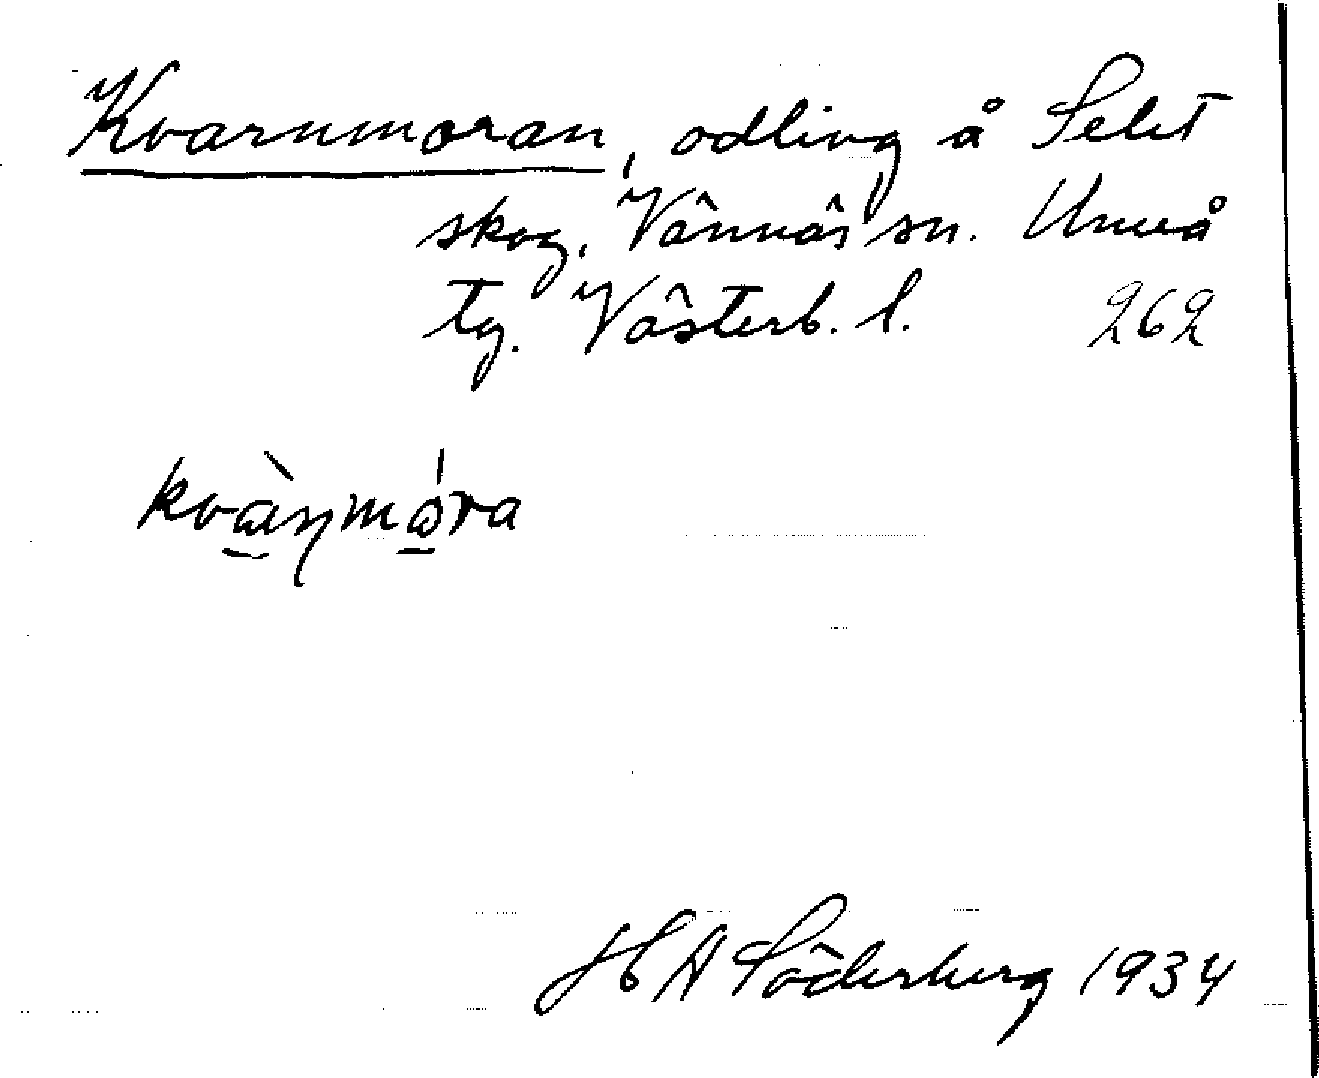 Kvarnmoran, odling å Selet
skog, Vännäs sn. Umeå
tg. Västerb. l. 262
kvàṇmóra
H A Söderberg 1934